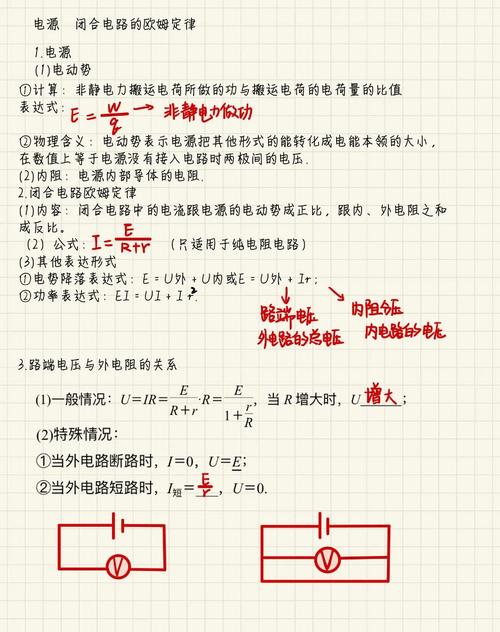 电源 闭合电路的欧姆定律
1.电源
(1)电动势
①计算: 非静电力搬运电荷所做的功与搬运电荷的电荷量的比值
表达式: E = W/q → 非静电力做功
②物理含义: 电动势表示电源把其他形式的能转化成电能本领的大小,
在数值上等于电源没有接入电路时两极间的电压.
(2)内阻: 电源内部导体的电阻.
2.闭合电路欧姆定律
(1)内容: 闭合电路中的电流跟电源的电动势成正比, 跟内、外电阻之和
成反比。
(2) 公式: I = E/R+r (只适用于纯电阻电路)
(3)其他表达形式
①电势降落表达式: E = U外 + U内或E = U外 + Ir;
②功率表达式: EI = UI + I²r.
路端电压
外电路的总电压
内阻分压
内电路的电压
3.路端电压与外电阻的关系
(1)一般情况: U=IR=E/R+r·R=E/1+r/R, 当 R 增大时, U 增大;
(2)特殊情况:
①当外电路断路时, I=0, U=E;
②当外电路短路时, I短=E/r, U=0.
V
V